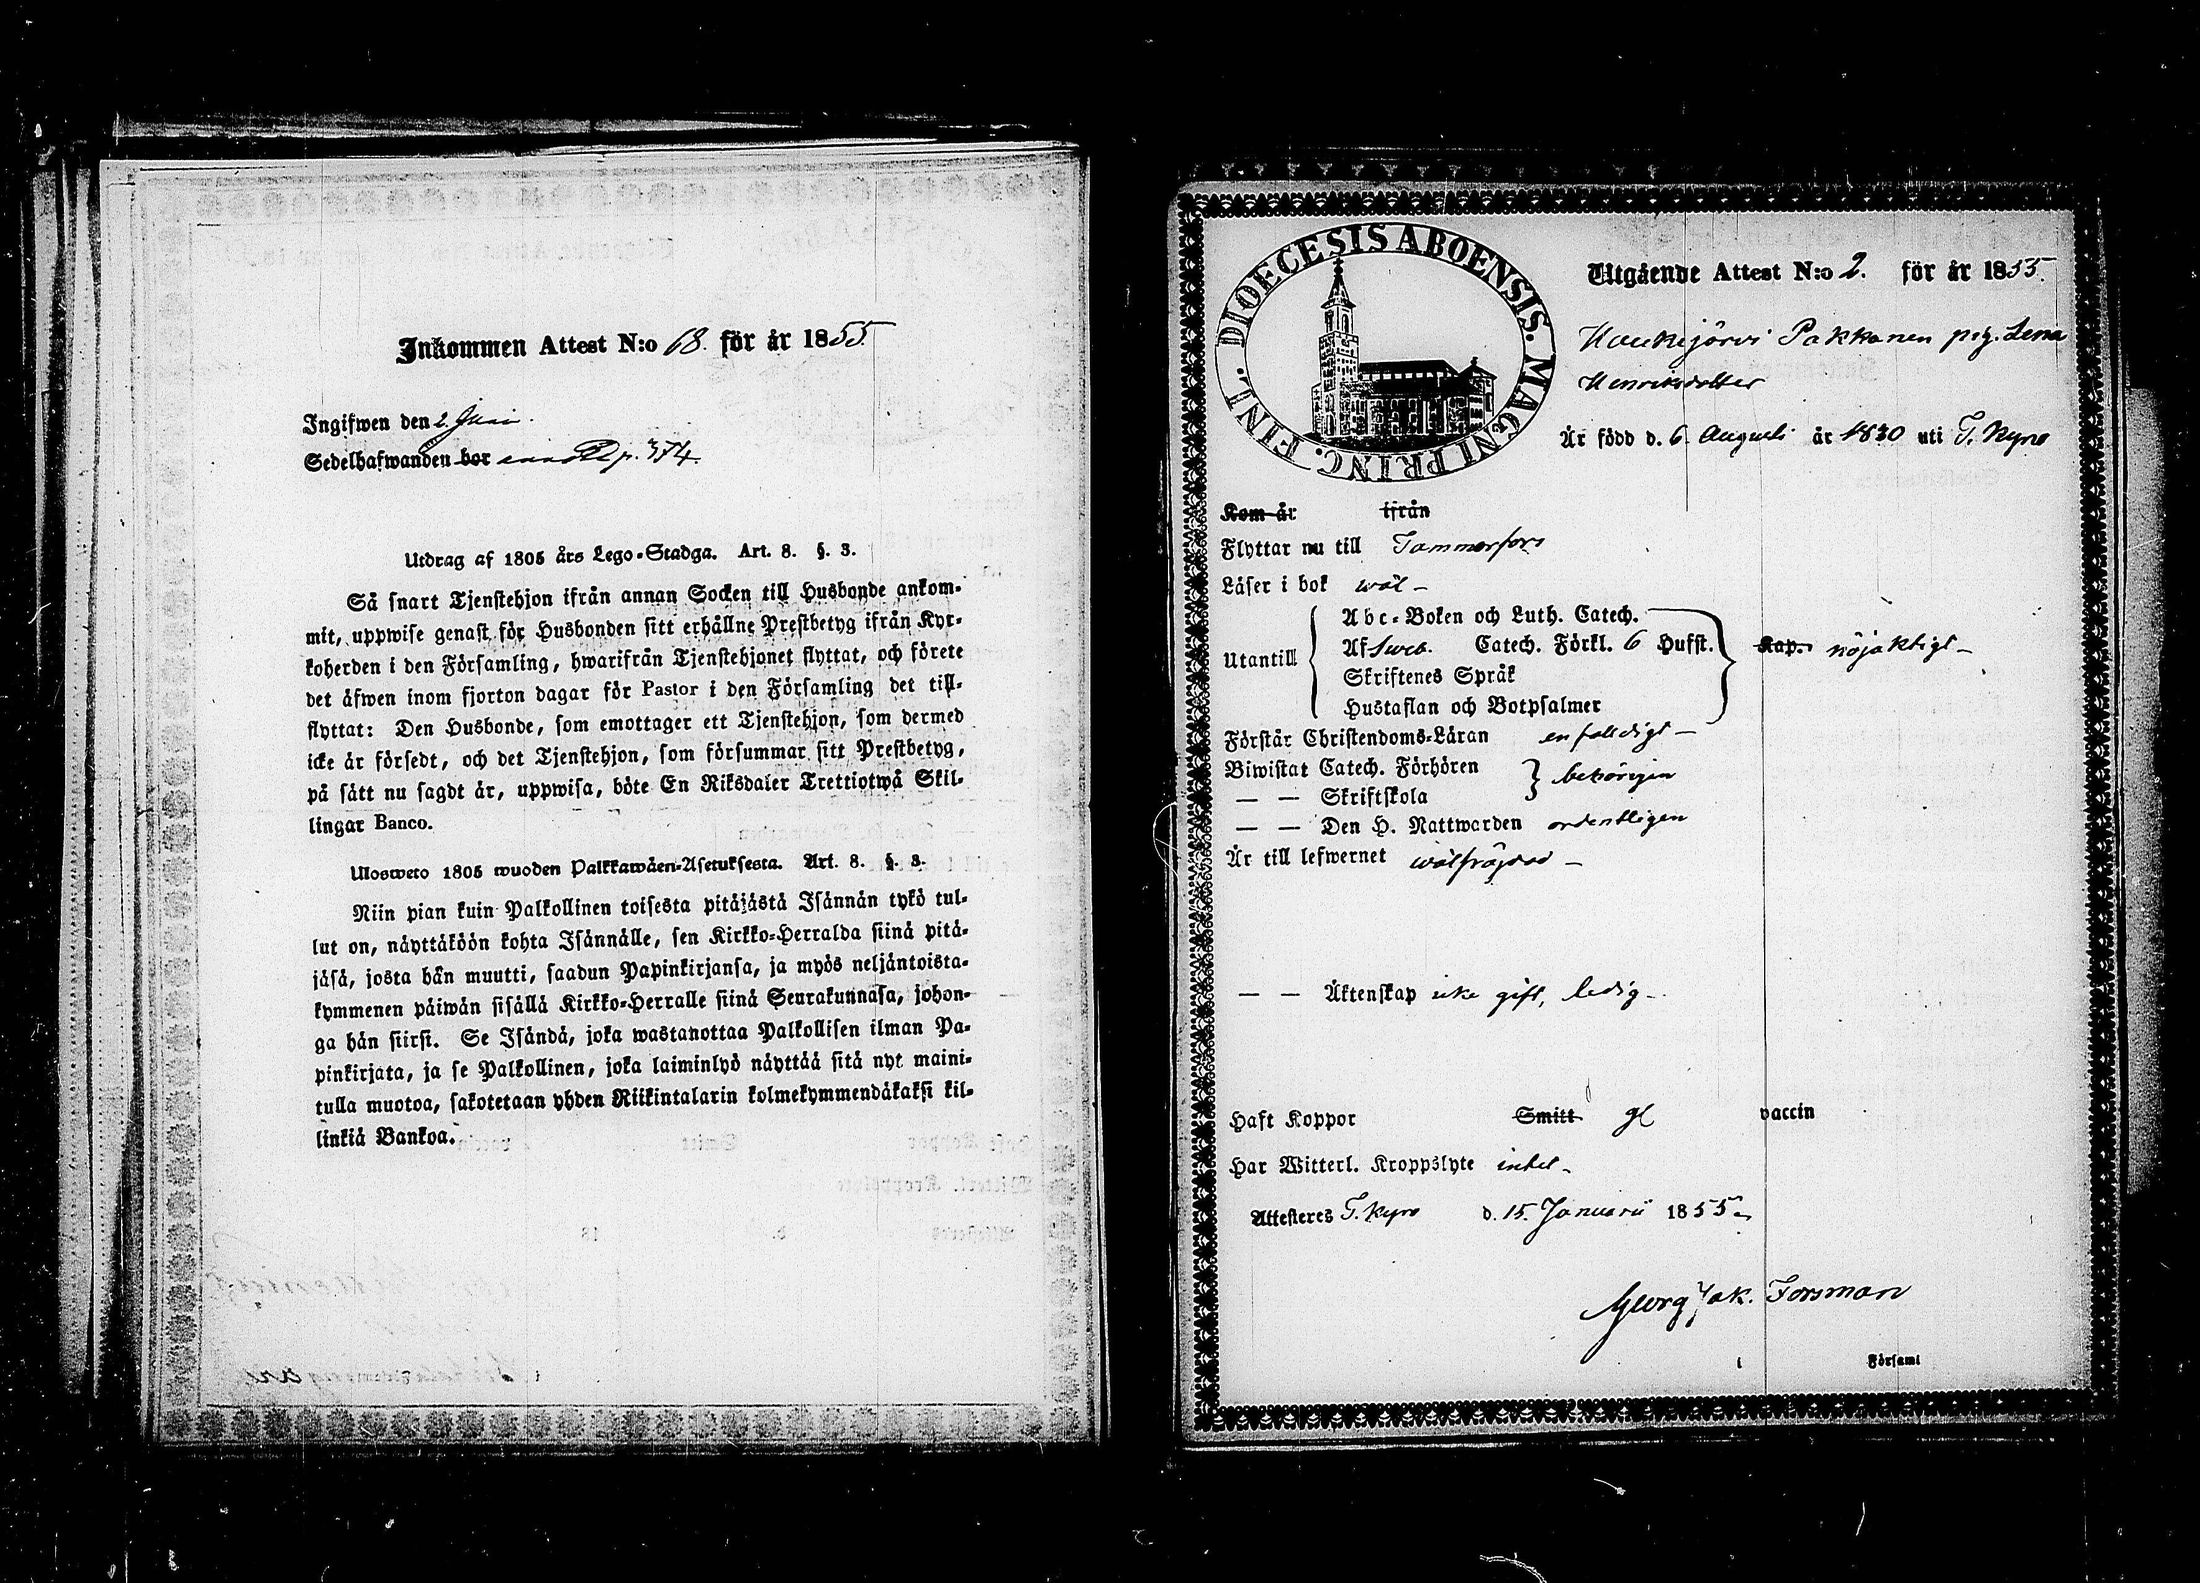 Inkommen Attest N:o 68. för år 1855.
Ingifwen den 2 Juni.
Sedelhafwanden bor p. 374.
Utdrag af 1805 års Lego-Stadga. Art. 8. §. 3.
Så snart Tjenstehjon ifrån annan Socken till Husbonde ankom-
mit, uppwise genast för Husbonden sitt erhållne Prestbetyg ifrån Kyr-
koherden i den Församling, hwarifrån Tjenstehjonet flyttat, och förete
det äfwen inom fjorton dagar för Pastor i den Församling det till-
flyttat: Den Husbonde, som emottager ett Tjenstehjon, som dermed
icke är försedt, och det Tjenstehjon, som försummar sitt Prestbetyg,
på sätt nu sagdt är, uppwisa, böte En Riksdaler Trettiotwå Skil-
lingar Banco.
Ulosweto 1805 wuoden Palkkawäen-Asetuksesta. Art. 8. §. 3.
Niin pian kuin Palkollinen toisesta pitäjästä Isännän tykö tul-
lut on, näyttäköön kohta Isännälle, sen Kirkko-Herralda siinä pitä-
jäsä, josta hän muutti, saadun Papinkirjansa, ja myös neljäntoista-
kymmenen päiwän sisällä Kirkko-Herralle siinä Seurakunnasa, johon-
ga hän siirsi. Se Isändä, joka wastanottaa Palkollisen ilman Pa-
pinkirjata, ja se Palkollinen, joka laiminlyö näyttää sitä nyt maini-
tulla muotoa, sakotetaan yhden Riikintalarin kolmekymmendäkaksi kil-
linkiä Bankoa.
DIOECESIS ABOENSIS. MAGNI PRINC. FINL.
Utgående Attest N:o 2. för år 1855.
Haukijärvi Pakkanen pig. Lena
Henriksdotter
Är född d. 6. Augusti år 1830 uti T. Kyro
Kom år ifrån
Flyttar nu till Tammerfors
Läser i bok wäl –
Utantill
Abc-Boken och Luth. Catech.
Af Sweb. Catech. Förkl. 6 Hufst. Kap. nöjaktigt –
Skriftenes Språk
Hustaflan och Botpsalmer
Förstår Christendoms-Läran enfalldigt –
Biwistat Catech. Förhören behörigen
— — Skriftskola
— — Den H. Nattwarden ordentligen
Är till lefwernet wälfrägdad –
— — Äktenskap icke gift, ledig –
Haft Koppor Smitt gl vaccin
Har Witterl. Kroppslyte intet –
Attesteres T. Kyro d. 15. Januarii 1855 –
Georg Jak. Forsman
i Församl